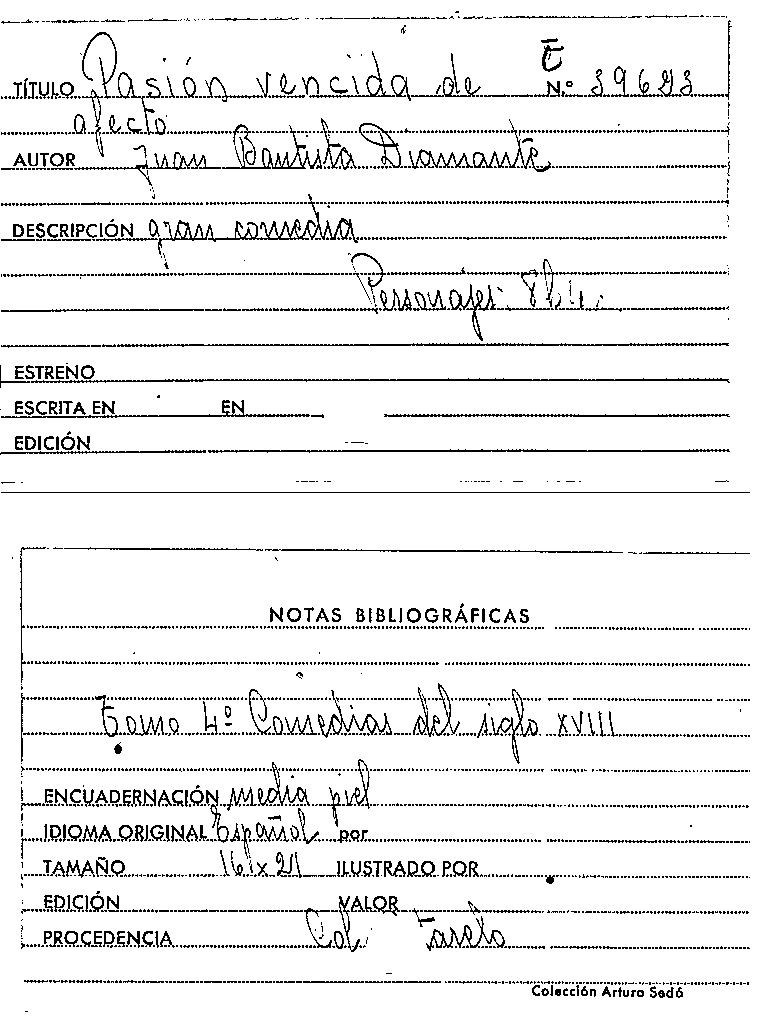 E
TÍTULO Pasión vencida de N.º 39693
afecto
AUTOR Juan Bautista Diamante
DESCRIPCIÓN gran comedia
Personajes: 8h.4.
ESTRENO
ESCRITA EN EN
EDICIÓN
NOTAS BIBLIOGRÁFICAS
Tomo 4º Comedias del siglo XVIII
ENCUADERNACIÓN media piel
IDIOMA ORIGINAL Español por
TAMAÑO 16 x 21 ILUSTRADO POR
EDICIÓN VALOR
PROCEDENCIA Col.
Colección Arturo Sedó